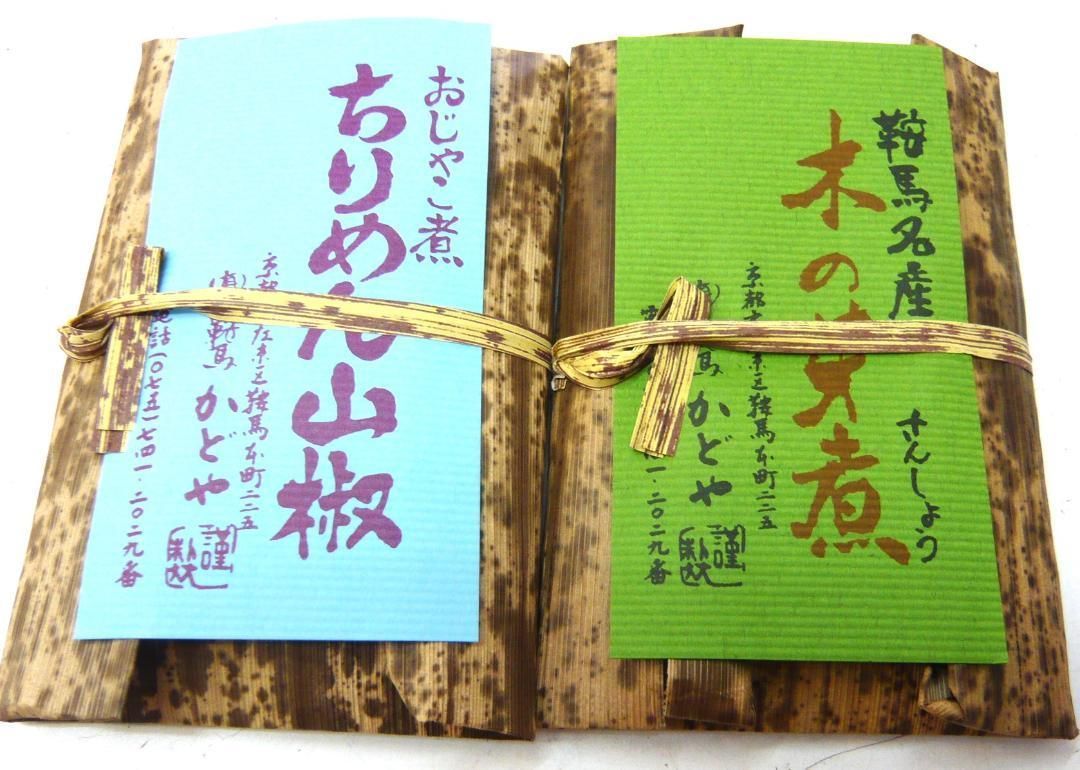 おじゃこ煮
ちりめん山椒
京都 左京区鞍馬本町二二五
鞍馬 かどや 謹製
電話(〇七五)七四一・二〇二九番
鞍馬名産
さんしょう
木の芽煮
京都 鞍馬本町二二五
馬 かどや 謹製
一・二〇二九番